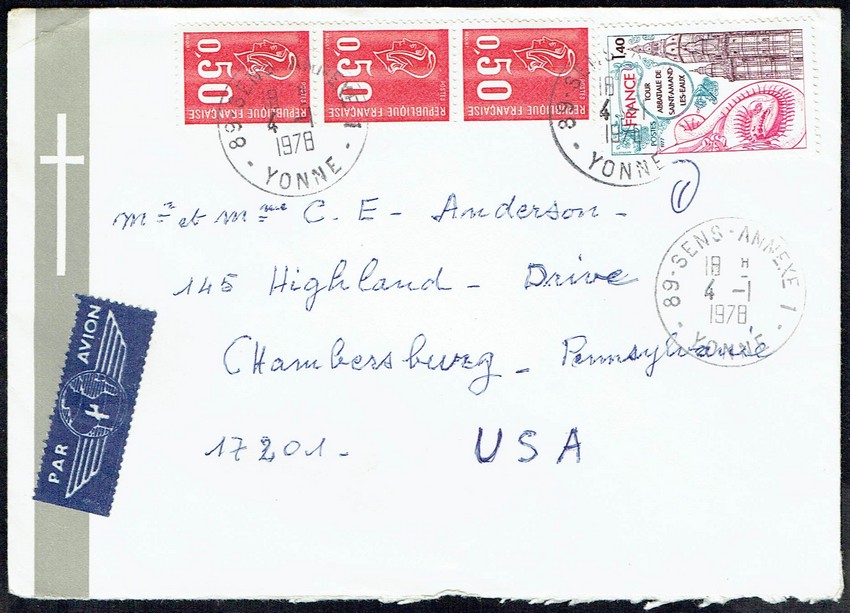 0,50 POSTES RÉPUBLIQUE FRANÇAISE
0,50 POSTES RÉPUBLIQUE FRANÇAISE
0,50 POSTES RÉPUBLIQUE FRANÇAISE
1,40
FRANCE
TOUR
ABBATIALE DE
SAINT-AMAND
LES-EAUX
POSTES 1977
89-SENS
18 H
4 -1
1978
YONNE
89-SENS
18
4
1978
YONNE
Mr et Mme C. E - Anderson -
145 Highland - Drive
Chambersburg - Pennsylvanie
17201 - USA
89-SENS-ANNEXE 1
18 H
4 -1
1978
YONNE
PAR AVION